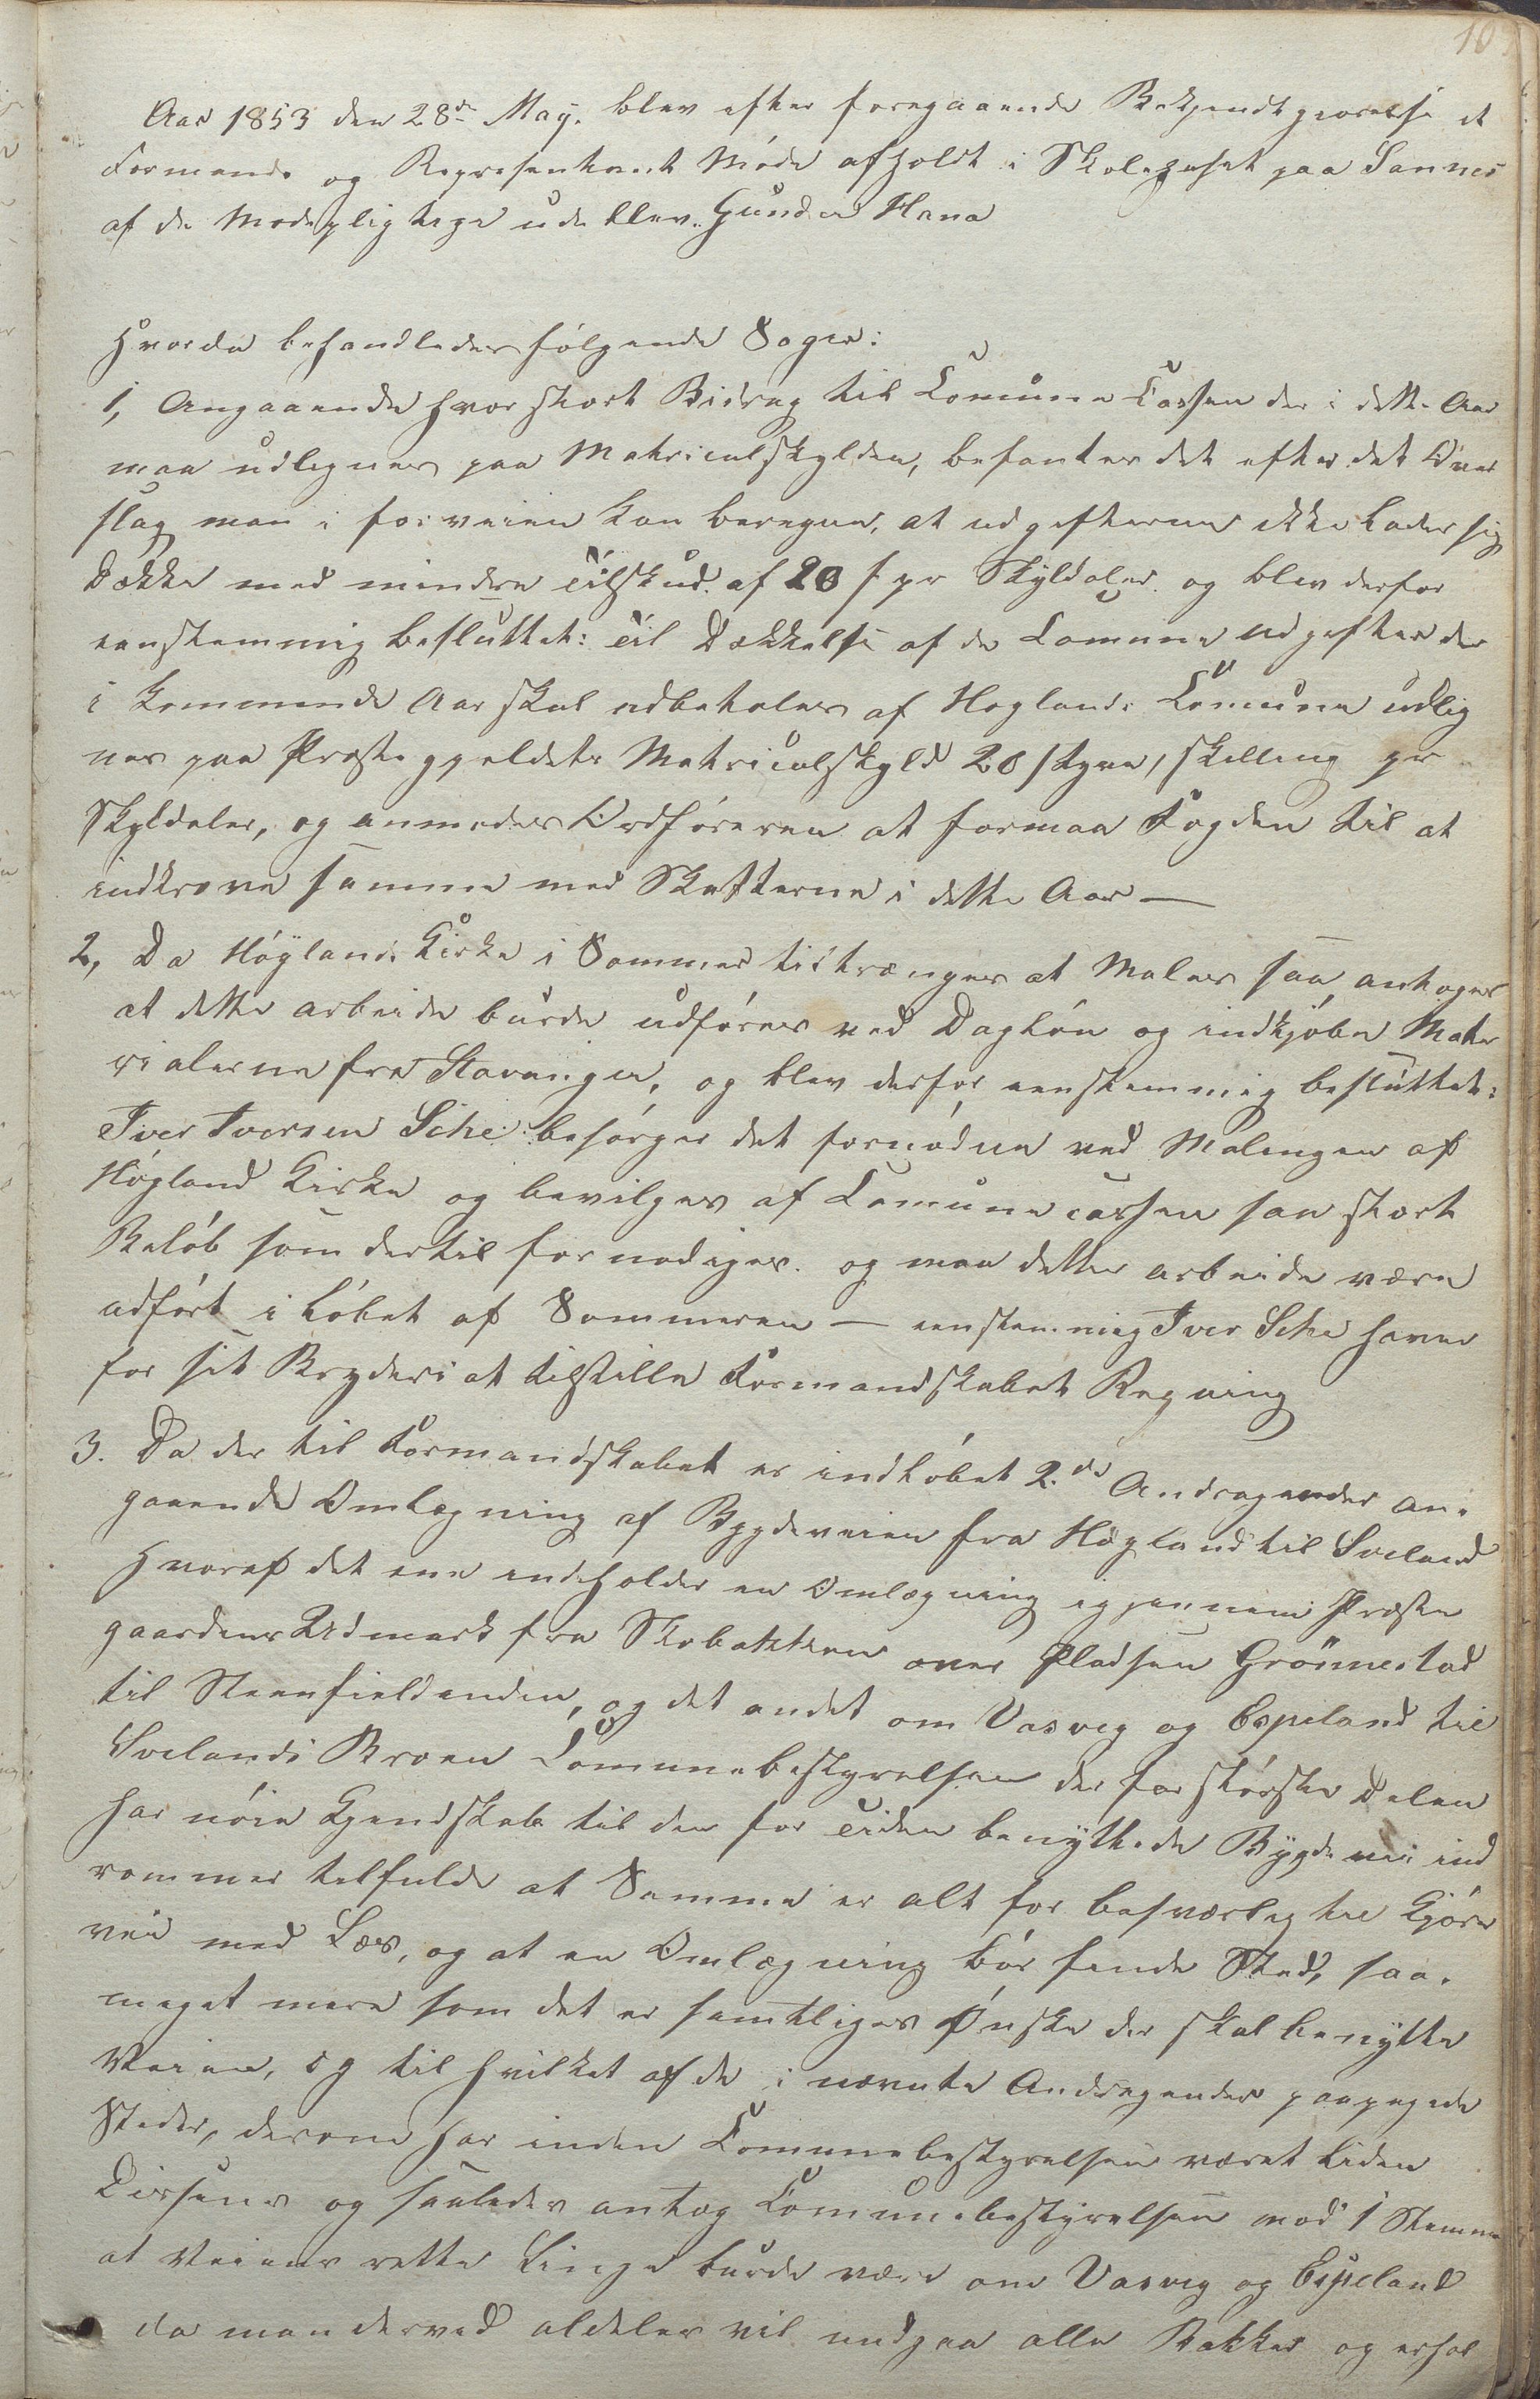 10
Aar 1853 den 28de May. blev efter foregaaende Bekjendtgiørelse et
Formands og Represenhant Møde afholdt i Skolehuset paa Sannes
af de Mødepligtige udeblev. Gunder Hana
Hvorda behandledes følgende Sager:
1, Angaaende hvor stort Bidrag til Comune Cassen der i dette Aar
maa udlignes paa Matriculskylden, befantes det efter det Over
slag man i forveien kan beregne, at udgifterne ikke lader sig
Dække med mindre Tilskud. af 20 s pr Skyldaler. og blev derfor
eenstemmig besluttet: Til Dækkelse af de Comune udgifter der
i kommende Aar skal udbetales af Høglands Comune udlig
nes paa Præstegjeldets Matriculskyld 20 /tyve/ skilling pr
Skyldaler, og anmodes Ordføreren at formaa Fogden til at
indkræve samme med Skatterne i dette Aar —
2, Da Høÿlands Kirke i Sommer tiltrænges at Males saa antages
at dette arbeide burde udføres ved Dagløn og indkjøbe Mate
rialerne fra Stavanger, og blev derfor eenstemmig besluttet:
Iver Iversen Sche besørger det fornødne ved Malingen af
Høgland Kirke og bevilges af Comune cassen saa stort
Beløb som dertil fornødiges. og maa dette arbeide være
udført i Løbet af Sommeren — eenstemmig Iver Sche haver
for sit Bryderi at tilstille Formandskabet Regning
3. Da der til Formandskabet er indløbet 2.de Andragender an-
gaaende Omlægning af Bygdeveien fra Høgland til Sveland
Hvoraf det ene indeholder en Omlægning igjennem Præste
gaardens Udmark fra Skobakken over Pladsen Grønnestad
til Steenfieldenden, og det andet om Vasveg og Espeland til
Svelands Broen Comunebestyrelsen der for størstedelen
har nøie Kjendskab til den for Tiden benyttede Bygdevei ind
rømmer tilfulde at Samme er alt for besværlig til Kjøre
vei med Læs, og at en Omlægning bør finde Sted, saa-
meget mere som det er samtliges Ønske der skal benytte
Veien, og til hvilket af de i nævnte Andragender paapegede
Steder, derom har inden Comunebestyrelsen været liden
Dissens og saaledes antog Comunebestyrelsen mod 1 Stemme
at Veiens rette Linge burde være om Vasveg og Espeland
da man derved aldeles vil undgaa alle Bakker og erhol